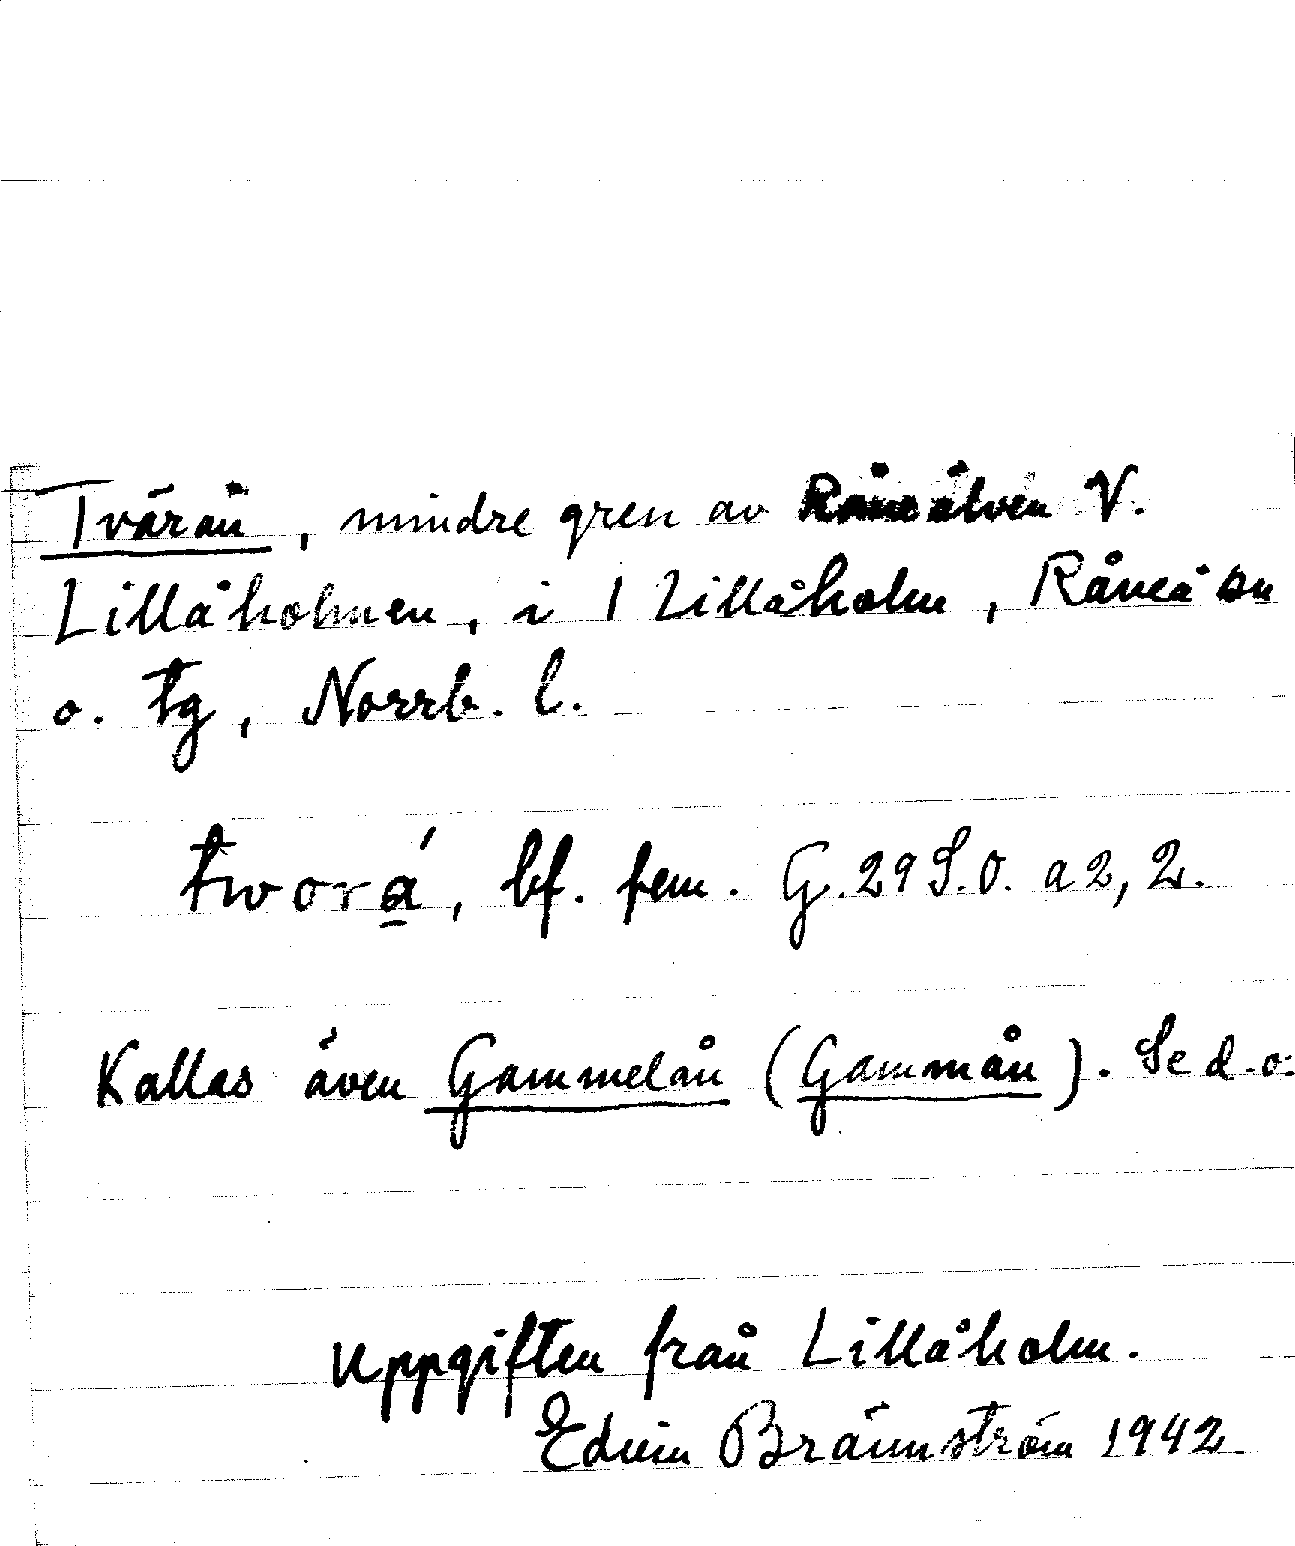 Tvärån, mindre gren av Råneälven V.
Lillåholmen, i l Lillåholm, Råneå sn
o. tg, Norrb. l.
tworá, bf. fem. G.29 S.O. a2,2.
Kallas även Gammelån (Gammån). Se d.o.
Uppgiften från Lillåholm.
Edvin Brännström 1942